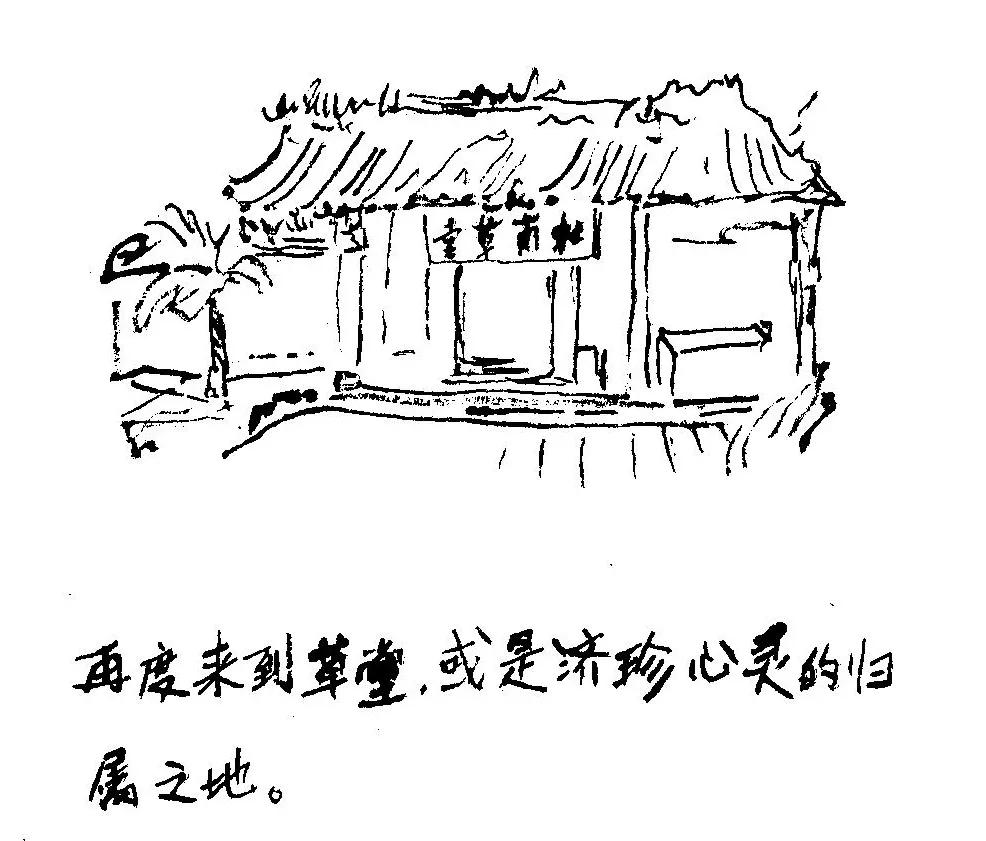 杜甫草堂
再度来到草堂，或是济珍心灵的归
属之地。